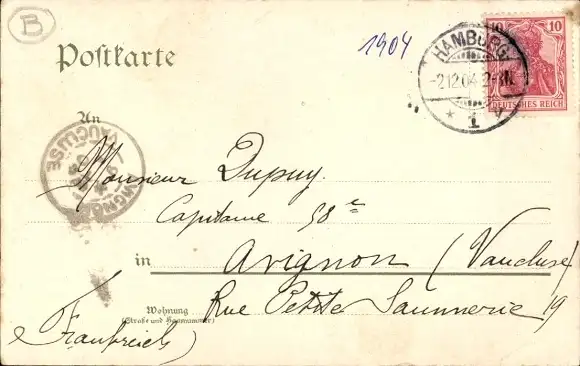 B
Postkarte
1904
10 10
DEUTSCHES REICH
HAMBURG
-2.12.04 2-3N.
* 1 v
An
AVIGNON
VAUCLUSE
Monsieur Dupuy
Capitaine 58e
in Avignon (Vaucluse)
Wohnung
(Straße und Hausnummer)
Rue Petite Saunnerie 19
(Frankreich)